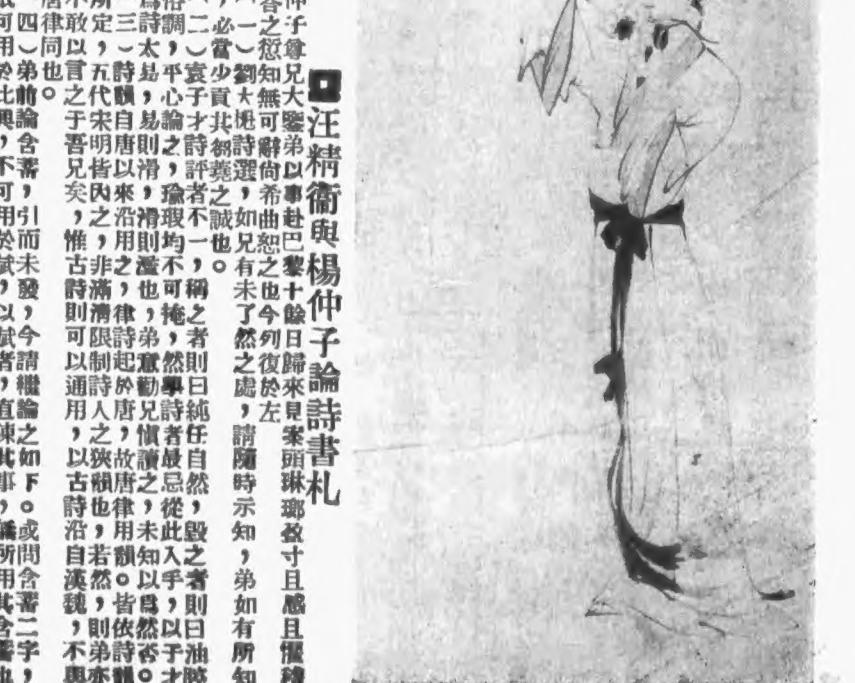 汪精衞與楊仲子論詩書札
仲子尊兄大鑒弟以事赴巴黎十餘日歸來見案頭琳瑯盈寸且感且慚稽
答之愆知無可辭尙希曲恕之也今列復於左
(一)劉大櫆詩選,如兄有未了然之處,請隨時示知,弟如有所知
,必當少貢其芻蕘之誠也。
(二)袁子才詩評者不一,稱之者則曰純任自然,毀之者則曰油腔
俗調,平心論之,瑜瑕均不可掩,然學詩者最忌從此入手,以子才
爲詩太易,易則滑,滑則濫也,弟意勸兄愼讀之,未知以爲然否。
(三)詩韻自唐以來沿用之,律詩起於唐,故唐律用韻。皆依詩韻
所定,五代宋明皆因之,非滿淸限制詩人之狹韻也,若然,則弟亦
不敢以言之于吾兄矣,惟古詩則可以通用,以古詩沿自漢魏,不與
唐律同也。
四)弟前論含蓄,引而未發,今請繼論之如下。或問含蓄二字,
可用於比興,不可用於賦,以賦者,直陳其事,所用其含蓄也